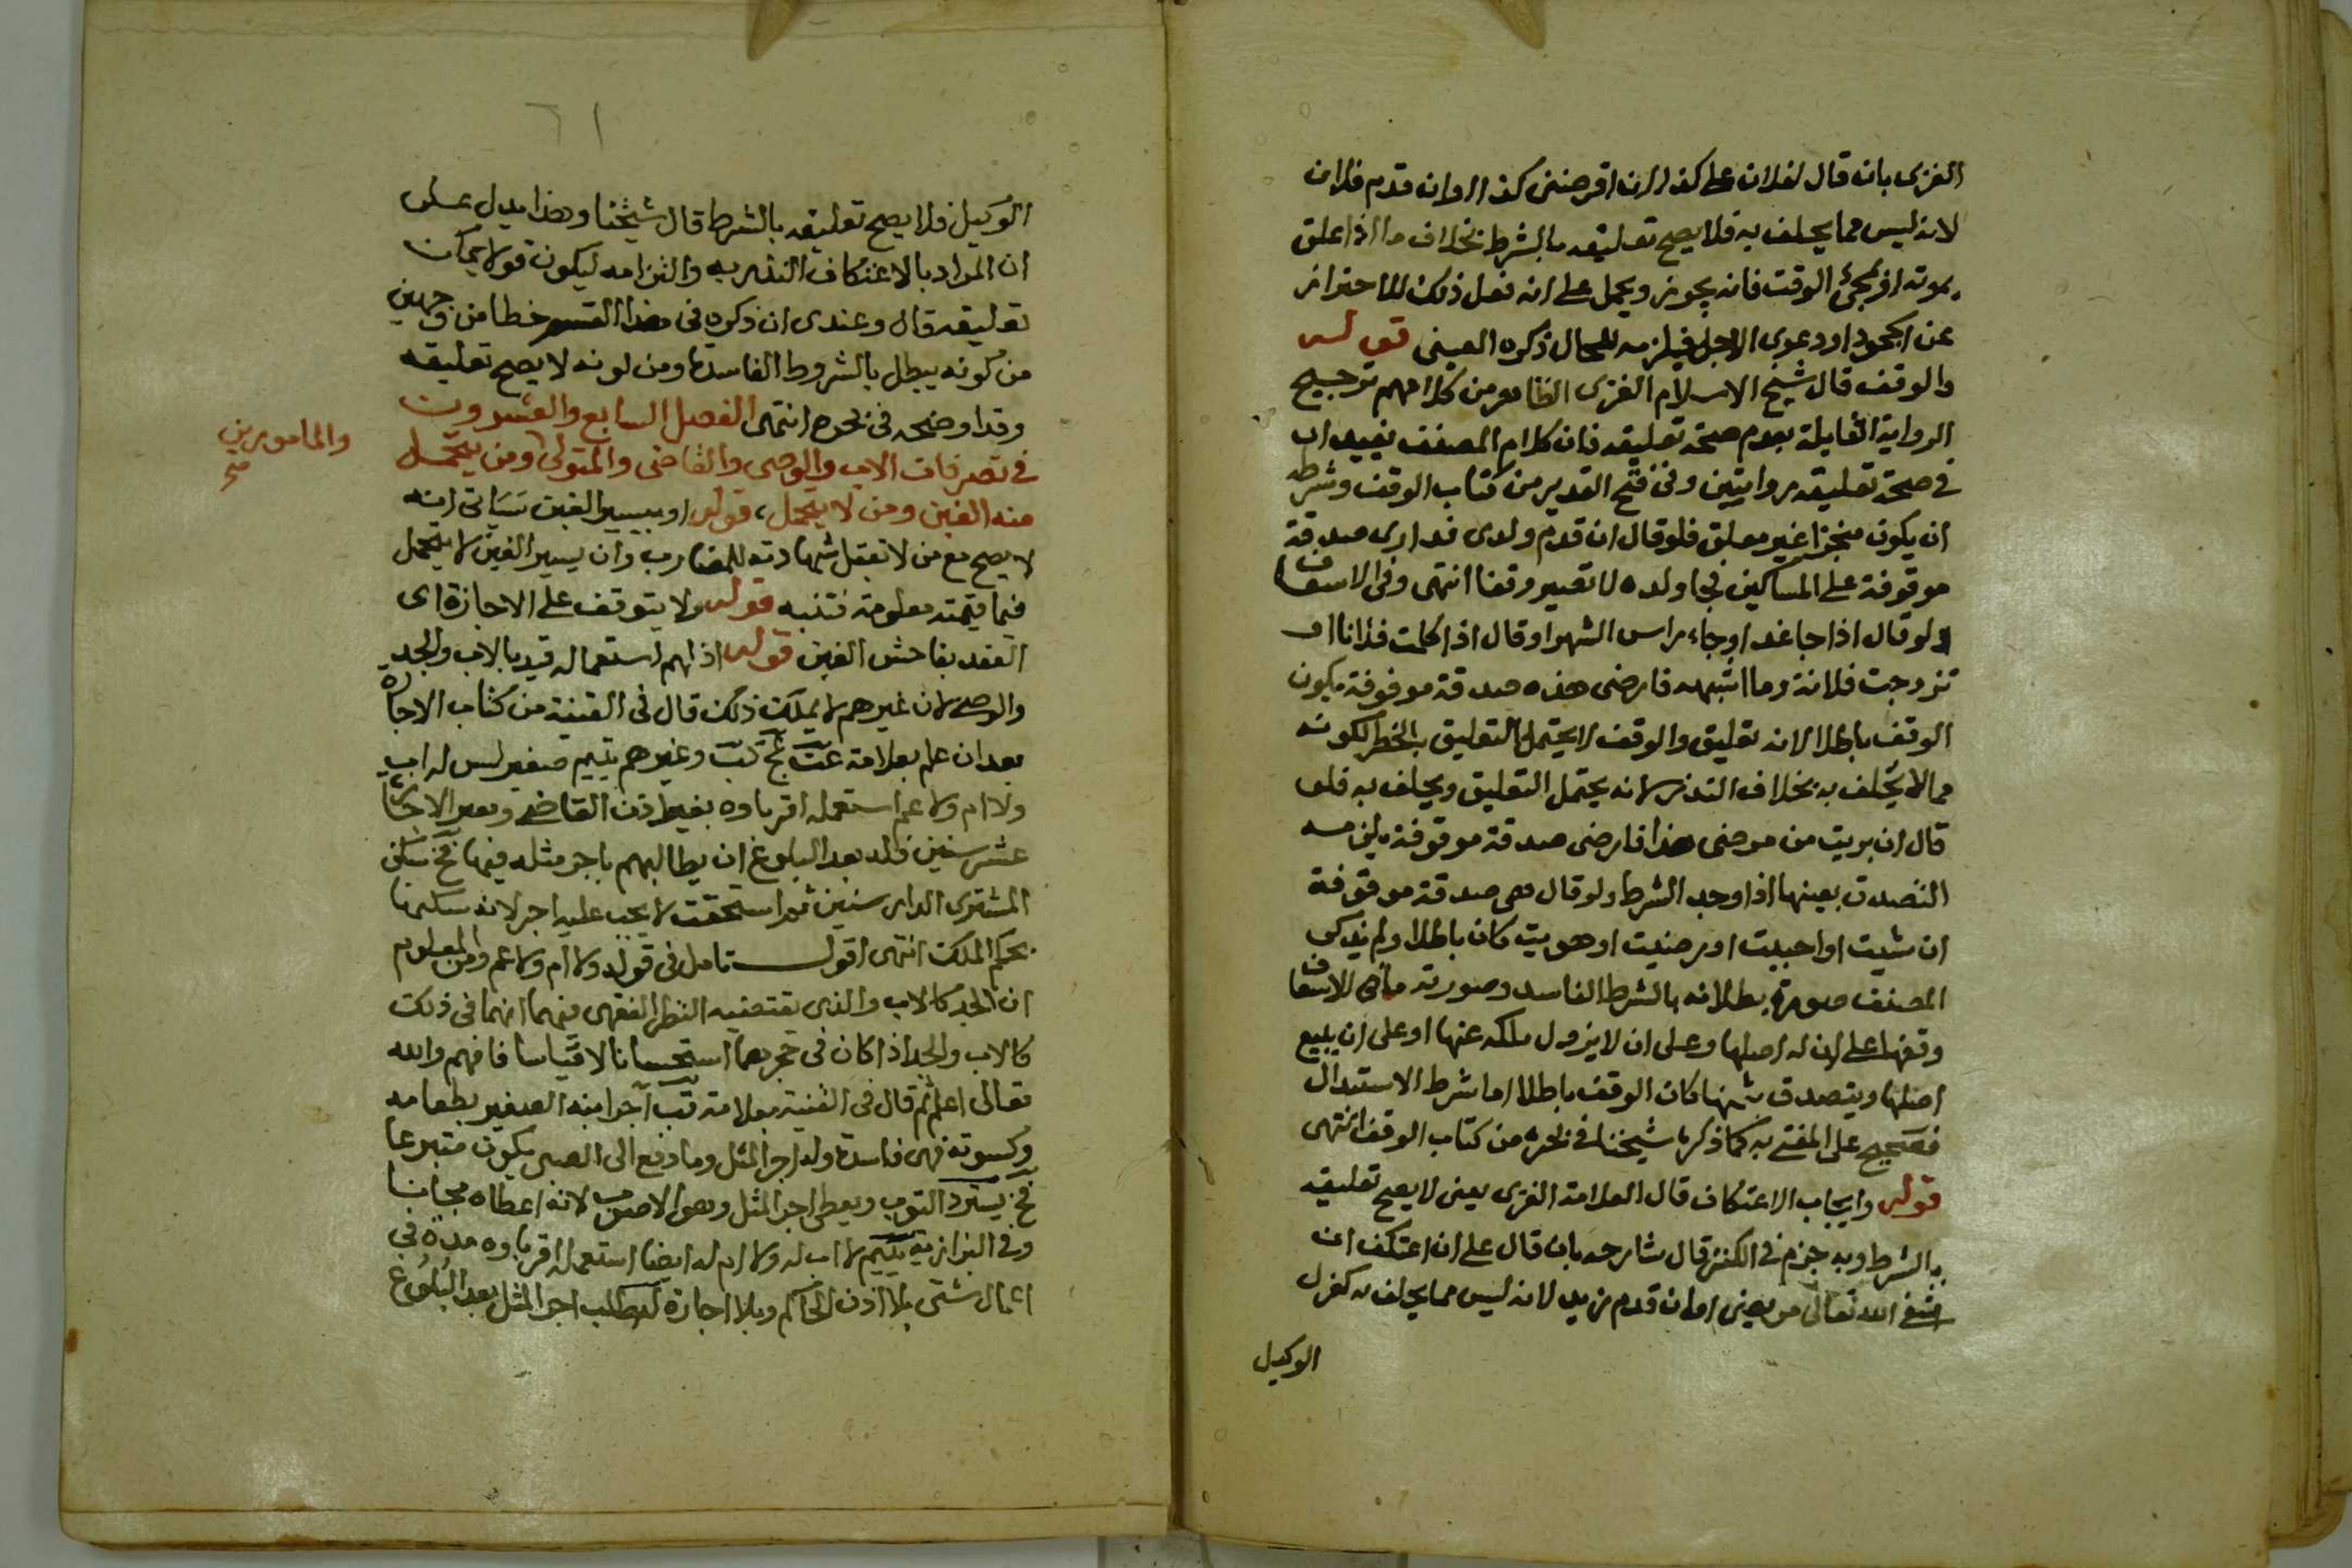 الغزى بان قال لفلان على كذا ان اقرضنى كذا او ان قدم فلان
لانه ليس مما يحلف به فلا يصح تعليقه بالشرط بخلاف ما اذا علق
بموته او بمجئ الوقت فانه يجوز ويحمل على انه فعل ذلك للاحتراز
عن الجحود او دعوى الاجل فيلزمه للحال ذكره العينى قوله
والوقف قال شيخ الاسلام الغزى الظاهر من كلامهم ترجيح
الرواية القايلة بعدم صحة تعليقه فان كلام المصنف يفيد ان
فى صحة تعليقه روايتين وفى فتح القدير من كتاب الوقف وشرطه
ان يكون منجزا غير معلق فلو قال ان قدم ولدى فدارى صدقة
موقوفة على المساكين فجا ولده لا تصير وقفا انتهى وفى الاسعاف
ولو قال اذا جا غد او جاء راس الشهر او قال اذا كلمت فلانا او
تزوجت فلانة وما اشبهه فارضى هذه صدقة موقوفة يكون
الوقف باطلا لانه تعليق والوقف لا يحتمل التعليق بالخطر لكونه
مما لا يحلف به بخلاف النذر لانه يحتمل التعليق ويحلف به فلو
قال ان بريت من مرضى هذا فارضى صدقة موقوفة يلزمه
التصدق بعينها اذا وجد الشرط ولو قال هى صدقة موقوفة
ان شيت او احببت او رضيت او هويت كان باطلا ولم يذكر
المصنف صورة بطلانه بالشرط الفاسد وصورته ما فى الاسعاف
وقفها على ان له اصلها وعلى ان لا يزول ملكه عنها او على ان يبيع
اصلها ويتصدق بثمنها كان الوقف باطلا اما شرط الاستبدال
فصحيح على المفتى به كما ذكره شيخنا فى بحره من كتاب الوقف انتهى
قوله وايجاب الاعتكاف قال العلامة الغزى يعنى لا يصح تعليقه
بالشرط وبه جزم فى الكنز قال شارحه بان قال على ان اعتكف ان
شفى الله تعالى مريضى او ان قدم زيد لانه ليس مما يحلف به كعزل
الوكيل
٦١
الوكيل فلا يصح تعليقه بالشرط قال شيخنا وهذا يدل على
ان المراد بالاعتكاف النذر به والتزامه ليكون قولا يمكن
تعليقه قال وعندى ان ذكره فى هذا القسم خطا من وجهين
من كونه يبطل بالشروط الفاسدة ومن كونه لا يصح تعليقه
وقد اوضحه فى بحره انتهى الفصل السابع والعشرون
فى تصرفات الاب والوصى والقاضى والمتولى ومن يتحمل
والمامورين
صح
منه الغبن ومن لا يتحمل، قوله او بيسير الغبن سياتى انه
لا يصح مع من لا تقبل شهادته للمضارب وان يسير الغبن لا يتحمل
فيما قيمته معلومة فتنبه قوله ولا يتوقف على الاجازة اى
العقد بفاحش الغبن قوله اذ لهم استعماله قيد بالاب والجد
والوصى لان غيرهم لا يملك ذلك قال فى القنية من كتاب الاجارة
بعد ان علم بعلامة عت بخ كب وغيرهم يتيم صغير ليس له اب
ولا ام ولا عم استعمله اقرباوه بغير اذن القاضى وبغير الاجارة
عشر سنين فله بعد البلوغ ان يطالبهم باجر مثله فيها فخ سكن
المشترى الدار سنين ثم استحقت لا يجب عليه اجر لانه سكنها
بحكم الملك انتهى اقول تامل فى قوله ولا ام ولا عم ومن المعلوم
ان الجد كالاب والذى تقتضيه النظر الفقهى فيهما انهما فى ذلك
كالاب والجد اذا كان فى حجرهما استحسانا لا قياسا فافهم والله
تعالى اعلم ثم قال فى القنية بعلامة قب آجر ابنه الصغير بطعامه
وكسوته فهى فاسدة وله اجر المثل وما دفع الى الصبى يكون متبرعا
فخ يسترد الثوب ويعطى اجر المثل وهو الاصوب لانه اعطاه مجانا
وفى البزازية يتيم لا اب له ولا ام له ايضا استعمله اقرباوه مدة فى
اعمال شتى بلا اذن الحاكم وبلا اجارة له طلب اجر المثل بعد البلوغ